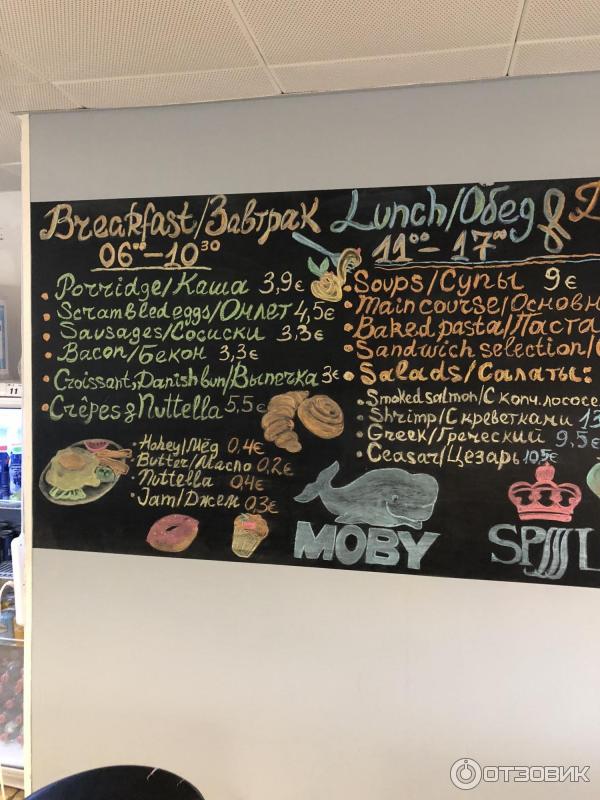 Breakfast/Завтрак
06⁰⁰-10³⁰
Porridge/Каша 3,9€
Scrambled eggs/Омлет 4,5€
Sausages/Сосиски 3,3€
Bacon/Бекон 3,3€
Croissant, Danish bun/Выпечка 3€
Crêpes & Nuttella 5,5€
Honey/Мёд 0,4€
Butter/Масло 0,2€
Nuttella 0,4€
Jam/Джем 0,3€
Lunch/Обед &
11⁰⁰-17⁰⁰
Soups/Супы 9€
Main course/Основн
Baked pasta/Паста
Sandwich selection/
Salads/Салаты:
Smoked salmon/С копч. лососе
Shrimp/С креветками 13
Greek/Греческий 9,5€
Ceasar/Цезарь 10,5€
MOBY
SP L
11
ОТЗОВИК